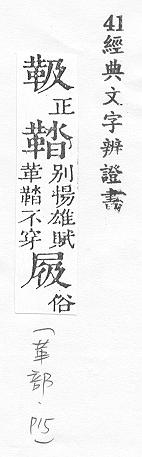 41經典文字辨證書
靸正鞜別揚雄賦革鞜不穿俗
(革部.P15)